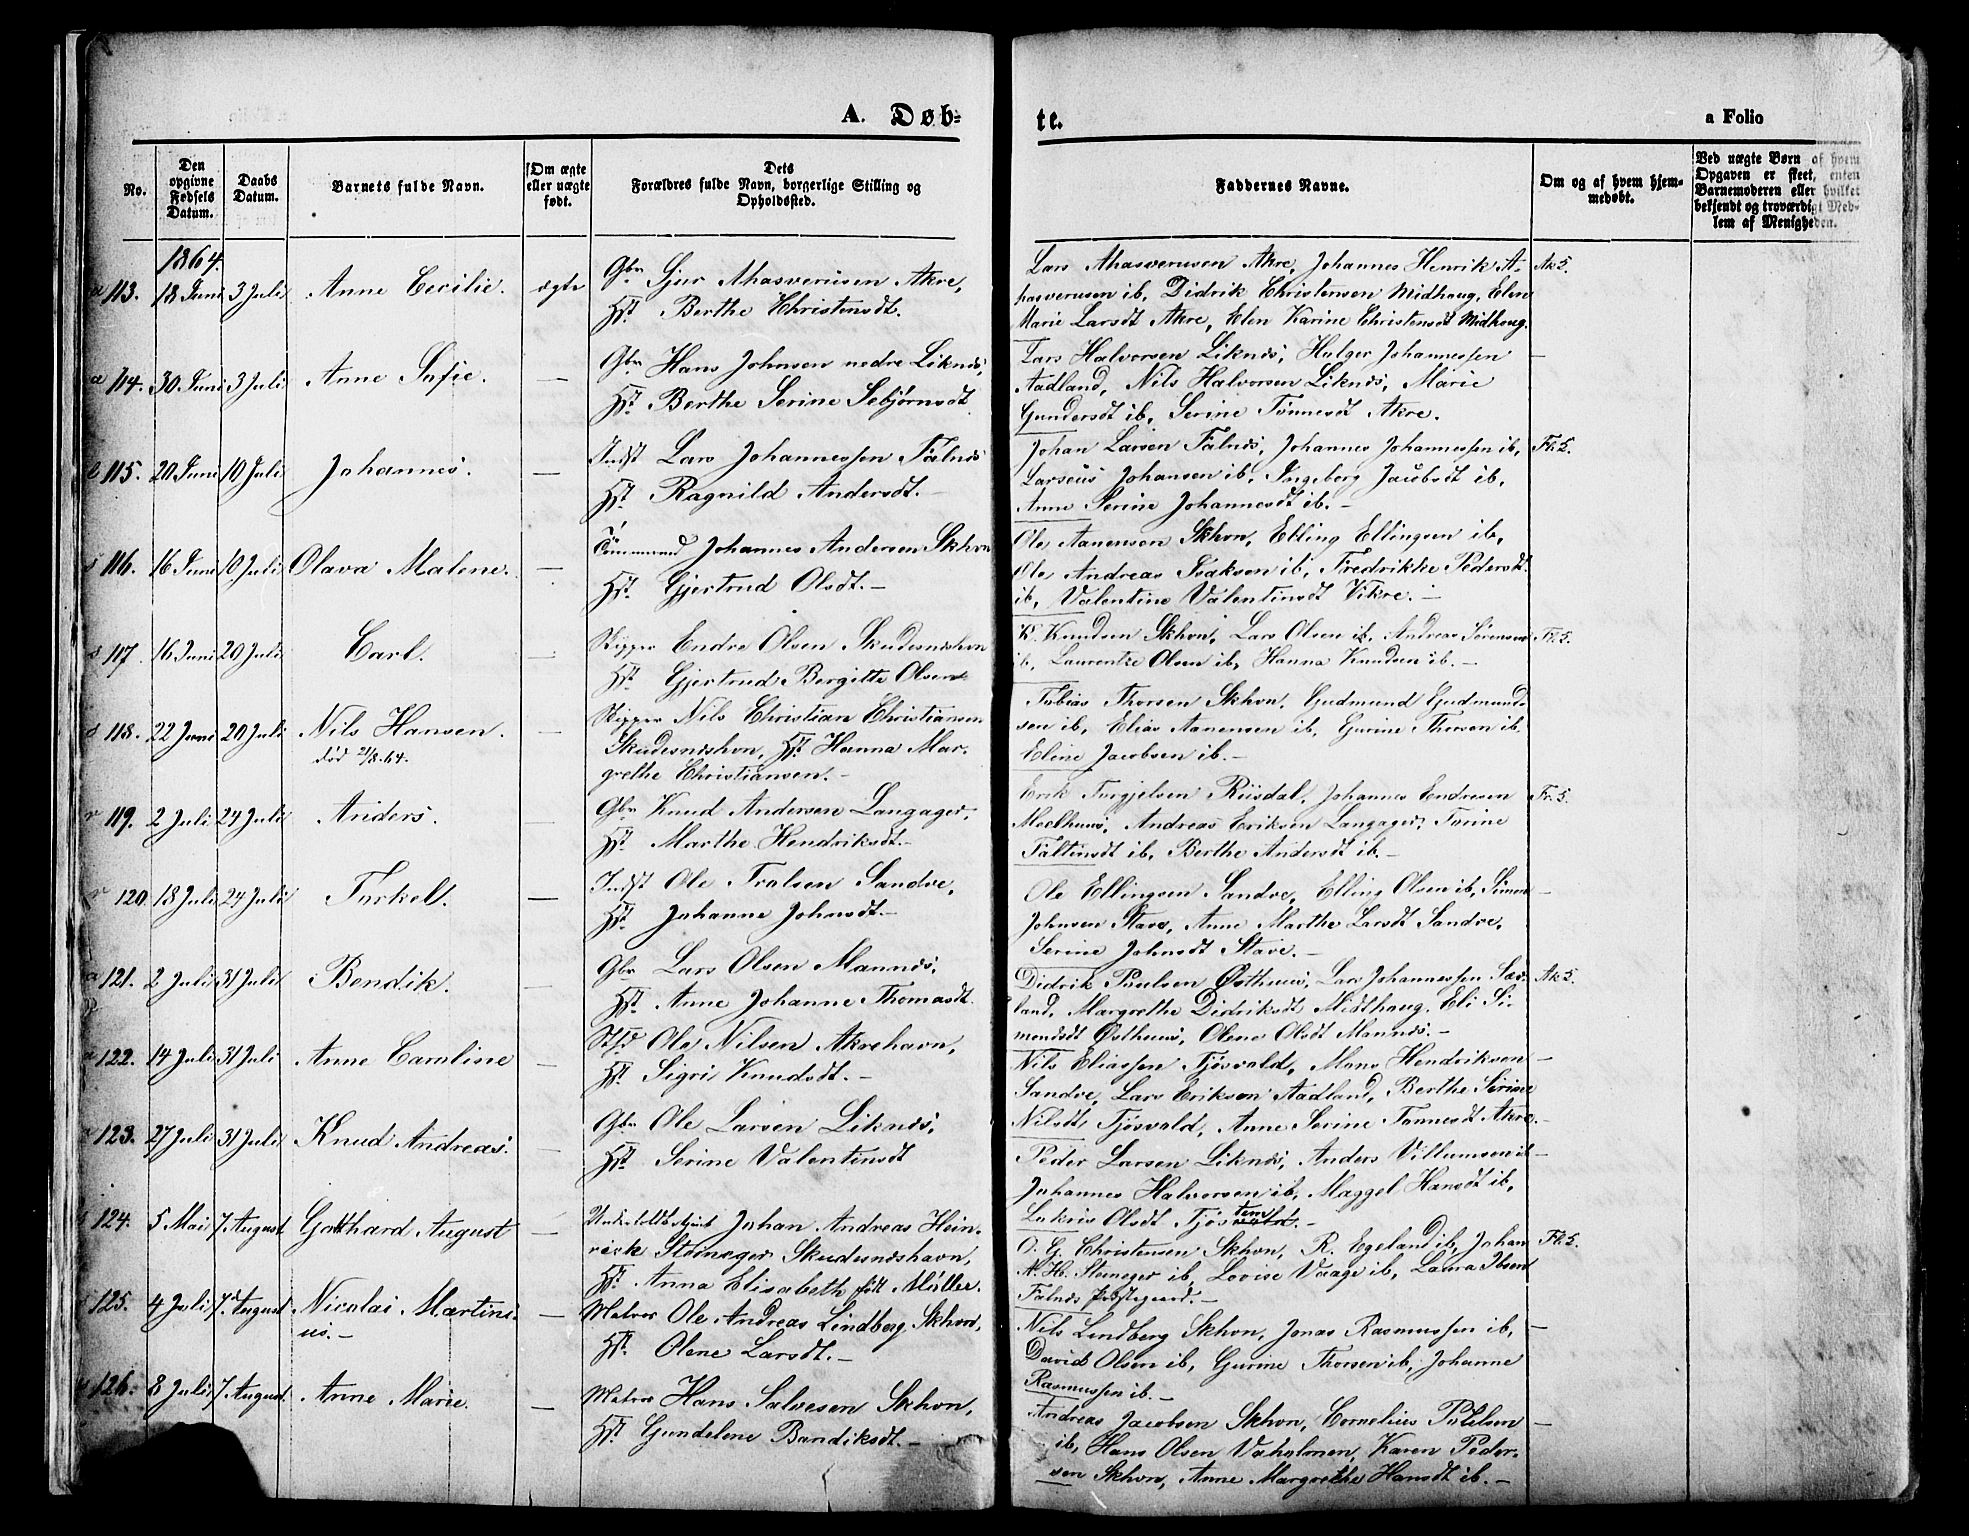 A. Døb=
te.
a Folio
No.
Den opgivne Fødsels Datum.
Daabs Datum.
Barnets fulde Navn.
Om ægte eller uægte født.
Dets Forældres fulde Navn, borgerlige Stilling og Opholdssted.
Faddernes Navne.
Om og af hvem hjemmedøbt.
Ved uægte Børn af hvem Opgaven er skeet, enten Barnemoderen eller hvilket bekjendt og troværdigt Medlem af Menigheden.
1864.
a 113. 18 Juni 3 Juli Anne Cecilie. ægte
Gbr Sjur Ahasverusen Akre,
Hst. Berthe Christensdt.
Lars Ahasverusen Akre, Johannes Henrik A-
hasverusen ib, Didrik Christensen Midhoug, Elen
Marie Larsdt Akre, Elen Karine Christensdt Midhoug.
Ak 5.
a 114. 30. Juni 3 Juli Anne Sofie. —
Gbr Hans Johnsen nedre Liknes,
Hst. Berthe Serine Sebjørnsdt.
Lars Halvorsen Liknes, Holger Johannessen
Aadland, Nils Halvorsen Liknes, Marie
Gundersdt ib, Serine Tønnesdt Akre.
—
115. 20 Juni 10 Juli Johannes. —
Indst Lars Johannessen Falnes
Hst. Ragnild Andersdt.—
Johan Larsen Falnes, Johannes Johannessen ib,
Larseus Johansen ib, Ingeborg Jacobsdt ib,
Anne Serine Johannesdt ib.—
Fl. 5.
s 116. 16 Juni 10 Juli Olava Malene. —
Tømmermd Johannes Andersen Skhvn
Hst. Gjertrud Olsdt.—
Ole Aanensen Skhvn, Elling Ellingsen ib,
Ole Andreas Isaksen ib, Fredrikke Pedersdt.
ib, Valentine Valentinsdt Vikre.—
s 117. 16 Juni 20 Juli Carl. —
Skipper Endre Olsen Skudesneshvn
Hst. Gjertrud Bergitte Olsen
K. Knudsen Skhvn, Lars Olsen ib, Andreas Sørensen
ib, Laurentze Olsen ib, Hanna Knudsen ib.—
Fl. 5.
s 118. 22 Juni 20 Juli Nils Hansen. —
død 21/8.64.
Skipper Nils Christian Christiansen
Skudesneshvn, Hst. Hanna Mar-
grethe Christiansen.—
Tobias Thorsen Skhvn, Gudmund Gudmund-
sen ib, Elias Aanensen ib, Gurine Thorsen ib,
Eline Jacobsen ib.—
r 119. 2 Juli 24 Juli Anders. —
Gbr Knud Andersen Langager,
Hst. Marthe Hendriksdt.—
Erik Torgjelsen Riisdal, Johannes Endresen
Meelhuus, Andreas Eriksen Langager, Torine
Taltinsdt ib, Berthe Andersdt ib.—
r 120. 18 Juli 24 Juli Torkel. —
Indst Ole Tralsen Sandve,
Hst. Johanne Johnsdt.—
Ole Ellingsen Sandve, Elling Olsen ib, Simon
Johnsen Stave, Anne Marthe Larsdt Sandve,
Serine Johnsdt Stave.—
—
a 121. 2 Juli 31 Juli Bendik. —
Gbr Lars Olsen Mannes,
Hst. Anne Johanne Thomasdt.
Didrik Poulsen Østhuus, Lars Johannessen Sæv-
land, Margrethe Didriksdt Midthoug, Eli Si-
monsdt Østhuus, Olene Olsdt Mannes.—
Ak 5.
a 122. 14 Juli 31 Juli Anne Caroline —
Ole Nilsen Akrehavn,
Hst. Sigri Knudsdt.—
Nils Eliassen Tjøsvold, Mons Hendriksen
Sandve, Lars Eriksen Aadland, Berthe Serine
Nilsdt, Tjøsvold, Anne Serine Tønnesdt Akre.
—
123. 27 Juli 31 Juli Knud Andreas. —
Gbr Ole Larsen Liknes,
Hst. Serine Valentinsdt
Peder Larsen Liknes, Anders Villumsen ib
Johannes Halvorsen ib, Maggel Hansdt ib,
Lukris Olsdt Tjøstem.—
—
124. 5 Mai 7. August Gotthard August —
Johan Andreas Hein-
rick Steineger Skudesneshavn,
Hst. Anna Elisabeth født Müller.
O. G. Christensen Skhvn, R. Egeland ib, Johan
A. H. Steineger ib, Lovise Vaage ib, Laura Ibsen
Falnes Præstegaard.—
Fl. 5.
125. 4 Juli 7. August Nicolai Martini-
us.— —
Matros Ole Andreas Lindberg Skhvn,
Hst. Olene Larsdt.—
Nils Lindberg Skhvn, Jonas Rasmussen ib,
David Olsen ib, Gurine Thorsen ib, Johanne
Rasmussen ib.—
—
126. 8 Juli 7. August. Anne Marie. —
Matros Hans Salvesen Skhvn,
Hst. Gundelene Bendiksdt.—
Andreas Jacobsen Skhvn, Cornelius
ib, Hans Olsen Vaholmen, Karen Peder-
sen Skhvn, Anne Margrethe Hansdt ib.—
—